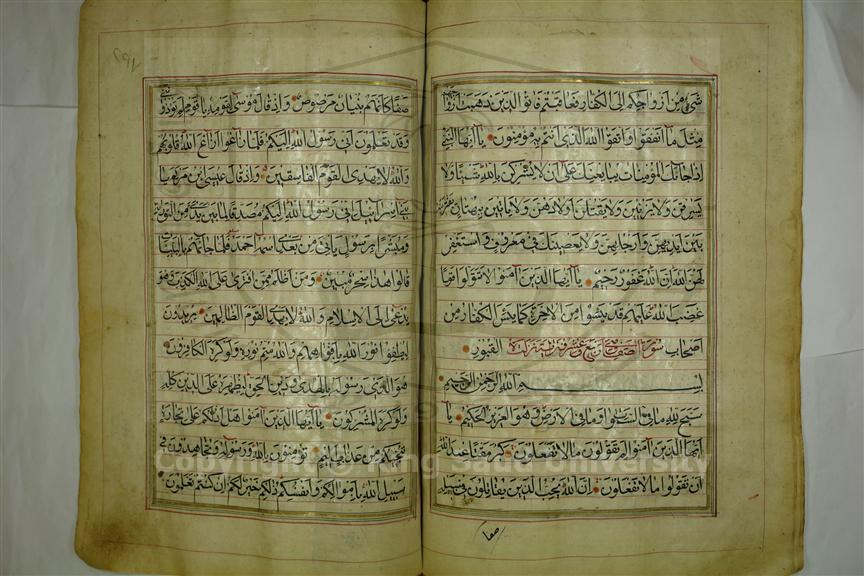 شيء من أزواجكم إلى الكفار فعاقبتم فاتوا الذين ذهبت أزوا
مثل ما أنفقوا واتقوا الله الذي أنتم به مؤمنون يا أيها النبي
إذا جاءتك المؤمنات يبايعنك على أن لا يشركن بالله شيئا ولا
يسرقن ولا يزنين ولا يقتلن أولادهن ولا ياتين ببهتان يفترينه
بين أيديهن وأرجلهن ولا يعصينك في معروف واستغفر
لهن الله إن الله غفور رحيم يا أيها الذين آمنوا لا تتولوا قوما
غضب الله عليهم قد يئسوا من الآخرة كما يئس الكفار من
أصحاب القبور
سورة الصف
بسم الله الرحمن الرحيم
سبح لله ما في السموات وما في الأرض وهو العزيز الحكيم يا
أيها الذين آمنوا لم تقولون ما لا تفعلون كبر مقتا عند الله
أن تقولوا ما لا تفعلون إن الله يحب الذين يقاتلون في سبيله
صفا
صفا كأنهم بنيان مرصوص وإذ قال موسى لقومه يا قوم لم تؤذو
وقد تعلمون أني رسول الله إليكم فلما زاغوا أزاغ الله قلوبهم
والله لا يهدي القوم الفاسقين وإذ قال عيسى ابن مريم يا
بني إسرائيل إني رسول الله إليكم مصدقا لما بين يدي من التورية
ومبشرا برسول ياتي من بعدي اسمه أحمد فلما جاءهم بالبينات
قالوا هذا سحر مبين ومن أظلم ممن افترى على الله الكذب وهو
يدعى إلى الإسلام والله لا يهدي القوم الظالمين يريدون
ليطفؤا نور الله بافواههم والله متم نوره ولو كره الكافرون
هو الذي أرسل رسوله بالهدى ودين الحق ليظهره على الدين كله
ولو كره المشركون يا أيها الذين آمنوا هل أدلكم على تجارة
تنجيكم من عذاب أليم تؤمنون بالله ورسوله وتجاهدون في
سبيل الله باموالكم وأنفسكم ذلكم خير لكم إن كنتم تعلمون
Copyright © King Saud University